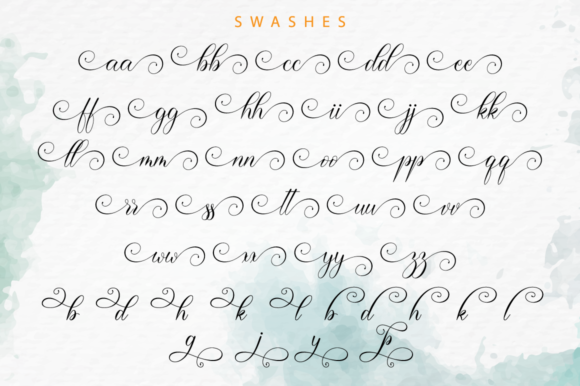 SWASHES
aa bb cc dd ee
ff gg hh ii jj kk
ll mm nn oo pp qq
rr ss tt uu vv
ww xx yy zz
b d h k l b d h k l
g j y p